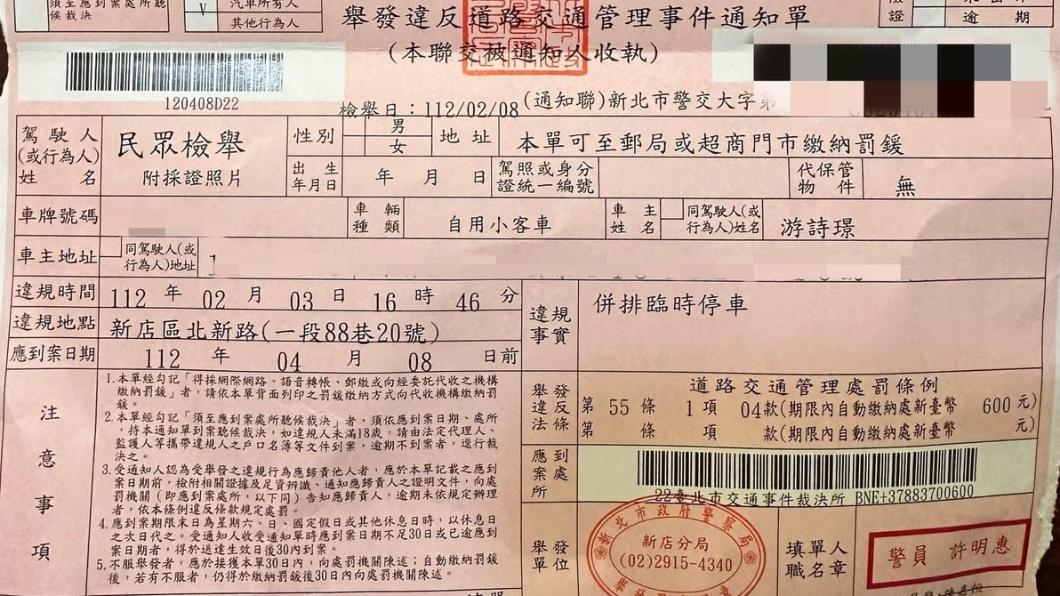 汽車所有人
其行為人
候裁決
逾期
舉發違反道路交通管理事件通知單
(本聯交被通知人收執)
120408D22
檢舉日：112/02/08
(通知聯)新北市警交大字第
駕駛人(或行為人)姓名
民眾檢舉
附採證照片
性別
男
女
地址
本單可至郵局或超商門市繳納罰鍰
出生年月日
年 月 日
駕照或身分證統一編號
代保管物件
無
車牌號碼
車輛種類
自用小客車
車主姓名
同駕駛人(或行為人)姓名
游詩璟
車主地址
同駕駛人(或行為人)地址
違規時間
112 年 02 月 03 日 16 時 46 分
違規地點
新店區北新路(一段88巷20號)
應到案日期
112 年 04 月 08 日前
違規事實
併排臨時停車
注意事項
1.本單經勾記「得採網際網路、語音轉帳、郵繳或向經委託代收之機構
繳納罰鍰」者，請依本單背面列印之罰鍰繳納方式向代收機構繳納罰
鍰。
2.本單經勾記「須至應到案處所聽候裁決」者，須依應到案日期、處所
，持本通知單到案聽候裁決，如違規人未滿18歲。請由法定代理人、
監護人等攜帶違規人之戶口名簿等文件到案，逾期不到案者，逕行裁
決之。
3.受通知人認為受舉發之違規行為應歸責他人者，應於本單記載之應到
案日期前，檢附相關證據及足資辨識、通知應歸責人之證明文件，向處
罰機關（即應到案處所，以下同）告知應歸責人，逾期未依規定辦理
者，依本條例違反條款規定處罰。
4.應到案期限末日為星期六、日、國定假日或其他休息日時，以休息日
之次日代之。受通知人收受通知單時應到案日期不足30日或已逾應到
案日期者，得於送達生效日後30內到案。
5.不服舉發者，應於接獲本單30日內，向處罰機關陳述；自動繳納罰鍰
後，若有不服者，仍得於繳納罰鍰後30日內向處罰機關陳述。
舉發違反法條
道路交通管理處罰條例
第 55 條 1 項 04款(期限內自動繳納處新臺幣 600 元)
第 條 項 款(期限內自動繳納處新臺幣 元)
應到案處所
22臺北市交通事件裁決所 BNE+37883700600
舉發單位
新北市政府警察局
新店分局
(02)2915-4340
填單人職名章
警員 許明惠